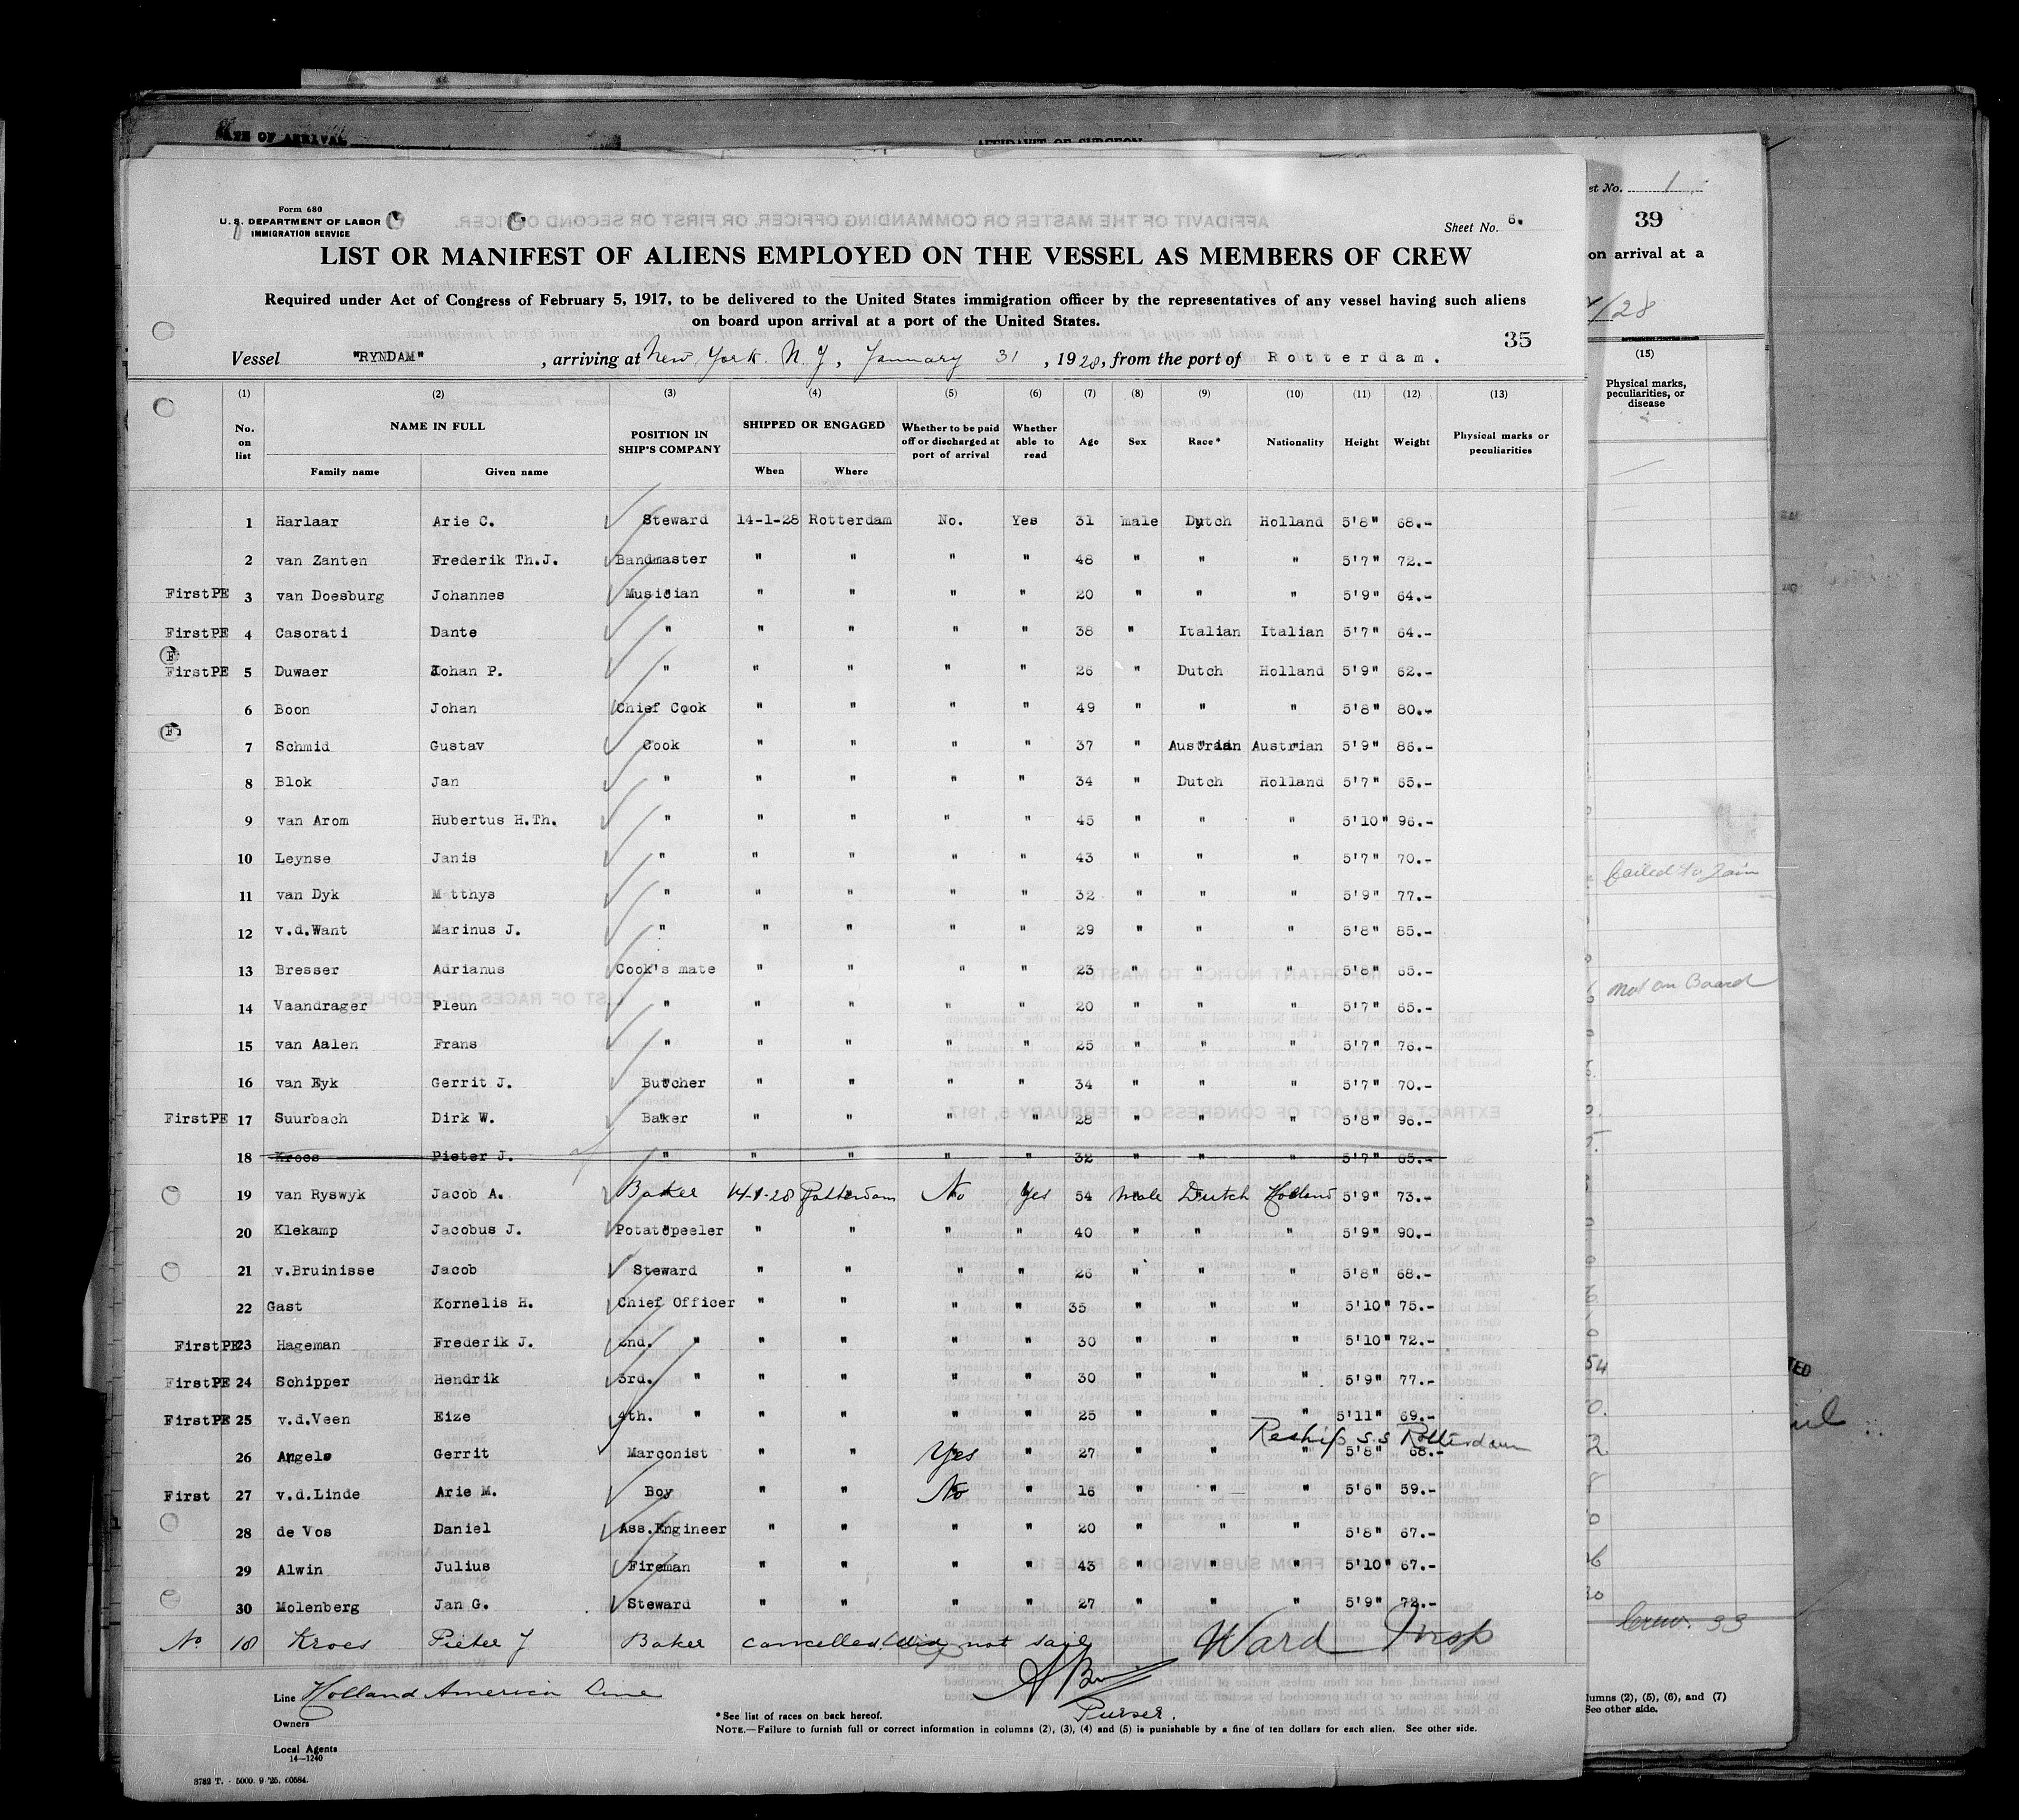 DATE OF ARRIVAL
AFFIDAVIT OF SURGEON
Form 680
U. S. DEPARTMENT OF LABOR
IMMIGRATION SERVICE
Sheet No. 6.
LIST OR MANIFEST OF ALIENS EMPLOYED ON THE VESSEL AS MEMBERS OF CREW
Required under Act of Congress of February 5, 1917, to be delivered to the United States immigration officer by the representatives of any vessel having such aliens
on board upon arrival at a port of the United States.
35
Vessel "RYNDAM", arriving at New York. N. Y, January 31, 1928, from the port of Rotterdam.
(1) (2) (3) (4) (5) (6) (7) (8) (9) (10) (11) (12) (13)
No. on list NAME IN FULL Family name Given name POSITION IN SHIP'S COMPANY SHIPPED OR ENGAGED When Where Whether to be paid off or discharged at port of arrival Whether able to read Age Sex Race* Nationality Height Weight Physical marks or peculiarities
1 Harlaar Arie C. Steward 14-1-28 Rotterdam No. Yes 31 male Dutch Holland 5'8" 68.-
2 van Zanten Frederik Th.J. Bandmaster " " " " 48 " " " 5'7" 72.-
First PE 3 van Doesburg Johannes Musician " " " " 20 " " " 5'9" 64.-
First PE 4 Casorati Dante " " " " " 38 " Italian Italian 5'7" 64.-
F
First PE 5 Duwaer Johan P. " " " " " 26 " Dutch Holland 5'9" 62.-
6 Boon Johan Chief Cook " " " " 49 " " " 5'8" 80.-
F
7 Schmid Gustav Cook " " " " 37 " Austrian Austrian 5'9" 86.-
8 Blok Jan " " " " " 34 " Dutch Holland 5'7" 65.-
9 van Arom Hubertus H.Th. " " " " " 45 " " " 5'10" 96.-
10 Leynse Janis " " " " " 43 " " " 5'7" 70.-
11 van Dyk Matthys " " " " " 32 " " " 5'9" 77.-
12 v.d.Want Marinus J. " " " " " 29 " " " 5'8" 85.-
13 Bresser Adrianus Cook's mate " " " " 23 " " " 5'8" 65.-
14 Vaandrager Pleun " " " " " 20 " " " 5'7" 65.-
15 van Aalen Frans " " " " " 25 " " " 5'7" 76.-
16 van Eyk Gerrit J. Butcher " " " " 34 " " " 5'7" 70.-
First PE 17 Suurbach Dirk W. Baker " " " " 28 " " " 5'8" 96.-
18 Kroes Pieter J. " " " " " 32 " " " 5'7" 65.-
19 van Ryswyk Jacob A. Baker 14-1-28 Rotterdam No Yes 54 Male Dutch Holland 5'9" 73.-
20 Klekamp Jacobus J. Potatopeeler " " " " 40 " " " 5'9" 90.-
21 v.Bruinisse Jacob Steward " " " " 26 " " " 5'8" 68.-
22 Gast Kornelis H. Chief Officer " " " " 35 " " " 5'10" 75.-
First PE 23 Hageman Frederik J. 2nd. " " " " " 30 " " " 5'10" 72.-
First PE 24 Schipper Hendrik 3rd. " " " " " 30 " " " 5'9" 77.-
First PE 25 v.d.Veen Eize 4th. " " " " " 25 " " " 5'11" 69.-
Reship S.S Rotterdam
26 Angels Gerrit Marconist " " Yes " 27 " " " 5'8" 68.-
First 27 v.d.Linde Arie M. Boy " " No " 16 " " " 5'6" 59.-
28 de Vos Daniel Ass.Engineer " " " " 20 " " " 5'8" 67.-
29 Alwin Julius Fireman " " " " 43 " " " 5'10" 67.-
30 Molenberg Jan G. Steward " " " " 27 " " " 5'9" 72.-
No 18 Kroes Pieter J Baker cancelled. did not sail Ward Insp
Purser.
Line Holland America Line
Owners
Local Agents
14—1240
*See list of races on back hereof.
NOTE.—Failure to furnish full or correct information in columns (2), (3), (4) and (5) is punishable by a fine of ten dollars for each alien. See other side.
3782 T. - 5000. 9 '25. 60584.
et No. 1
39
on arrival at a
/28
(15)
Physical marks, peculiarities, or disease
failed to join
not on Board
54
Crew. 33
lumns (2), (5), (6), and (7)
See other side.